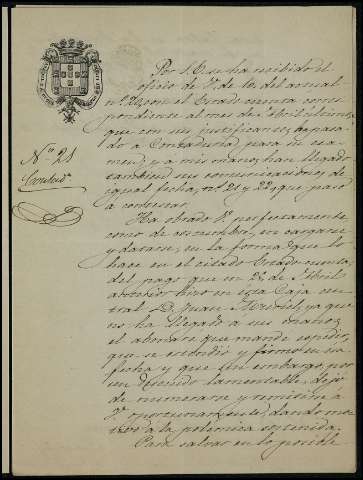 Por S. E. se ha recibido el
oficio de V. de 10, del actual
nº 20, con el Estado cuenta corres-
pondiente al mes de Abril último,
que con sus justificantes, he pasa-
do a Contaduría para su exa-
men, y a mis manos han llegado
tambien sus comunicaciones, de
igual fecha, nº 21 y 22, que paso
a contestar.
Nº 21
Contad.
Ha obrado V. perfectamente
como de costumbre, en cargarse
y datarse, en la forma que lo
hace en el citado Estado cuenta,
del pago que en 26 de Abril
anterior hizo en esta Caja cen-
tral D. Juan, ya que
no ha llegado a sus manos
el abonare que mandé expedir,
que se estendio y firmó en su
fecha y que sin embargo, por
un descuido lamentable, dejó
de numerarse y remitirse á
V. oportunamente, dando mo-
tivo a la polémica sostenida.
Para salvar en lo posible